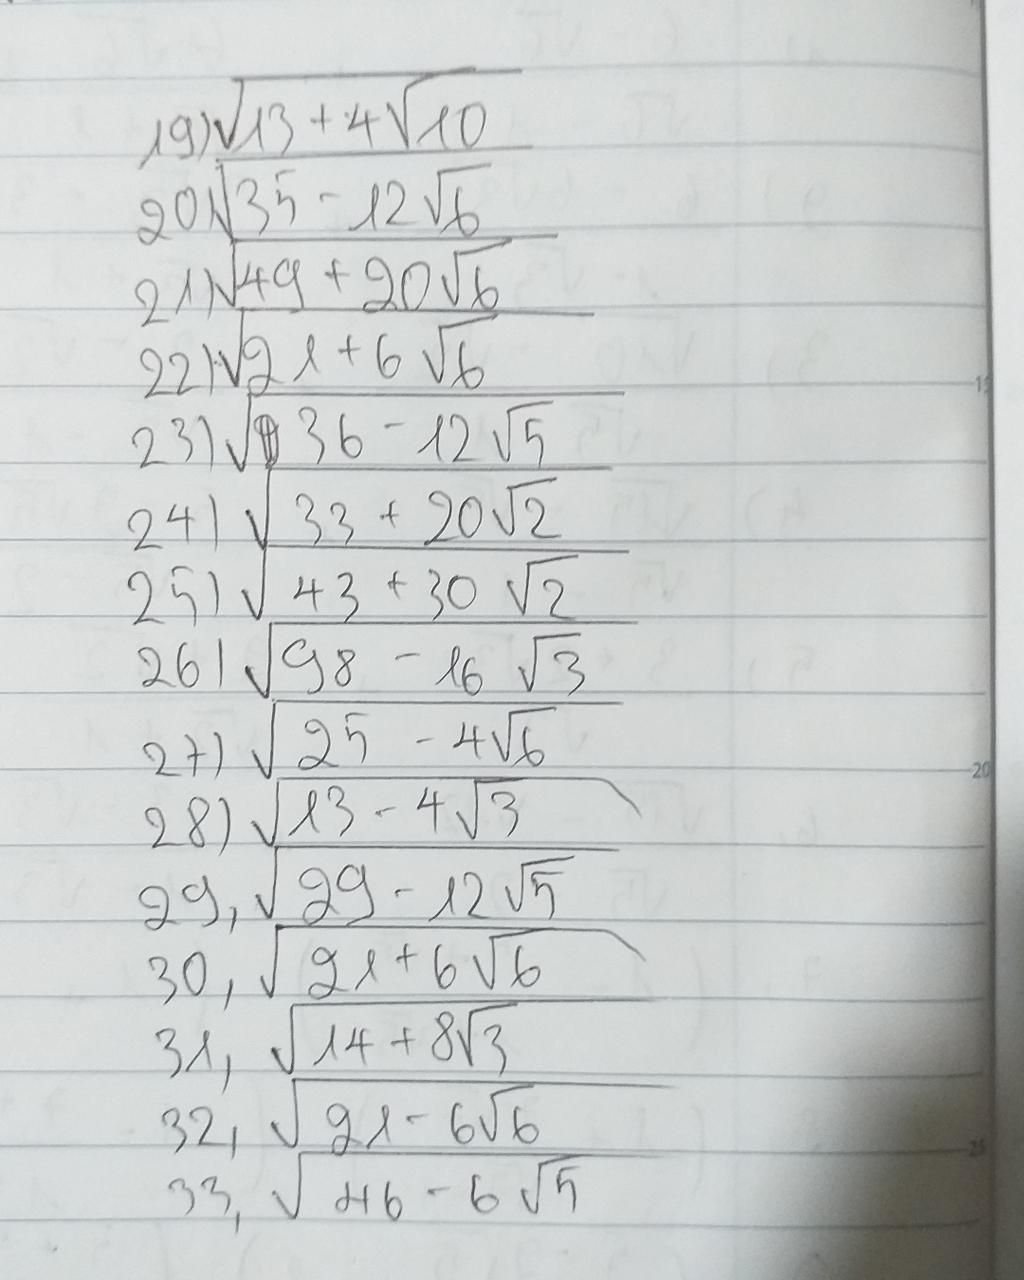 19) √13 + 4√10
20) √35 - 12√6
21) √49 + 20√6
22) √21 + 6√6
23) √36 - 12√5
24) √33 + 20√2
25) √43 + 30√2
26) √98 - 16√3
27) √25 - 4√6
28) √13 - 4√3
29, √29 - 12√5
30, √21 + 6√6
31, √14 + 8√3
32, √21 - 6√6
33, √46 - 6√5
15
20
25